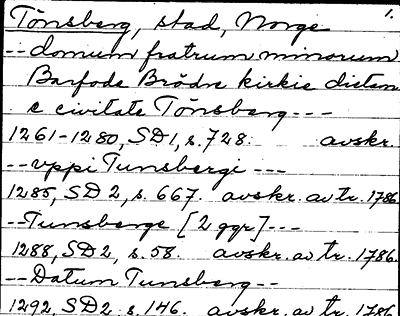 1.
Tönsberg, stad, Norge
-- domum fratrum minorum
Barfode Brödre kirkie dictam
e civitate Tönsberg ---
1261-1280, SD1, s. 728. avskr.
-- vppi Tunsbergi ---
1285, SD 2, s. 667. avskr. av tr. 1786
-- Tunsberge [2 ggr] ---
1288, SD2, s. 58. avskr. av tr. 1786.
-- Datum Tunsberg --
1292, SD2 s. 146. avskr. av tr. 1786